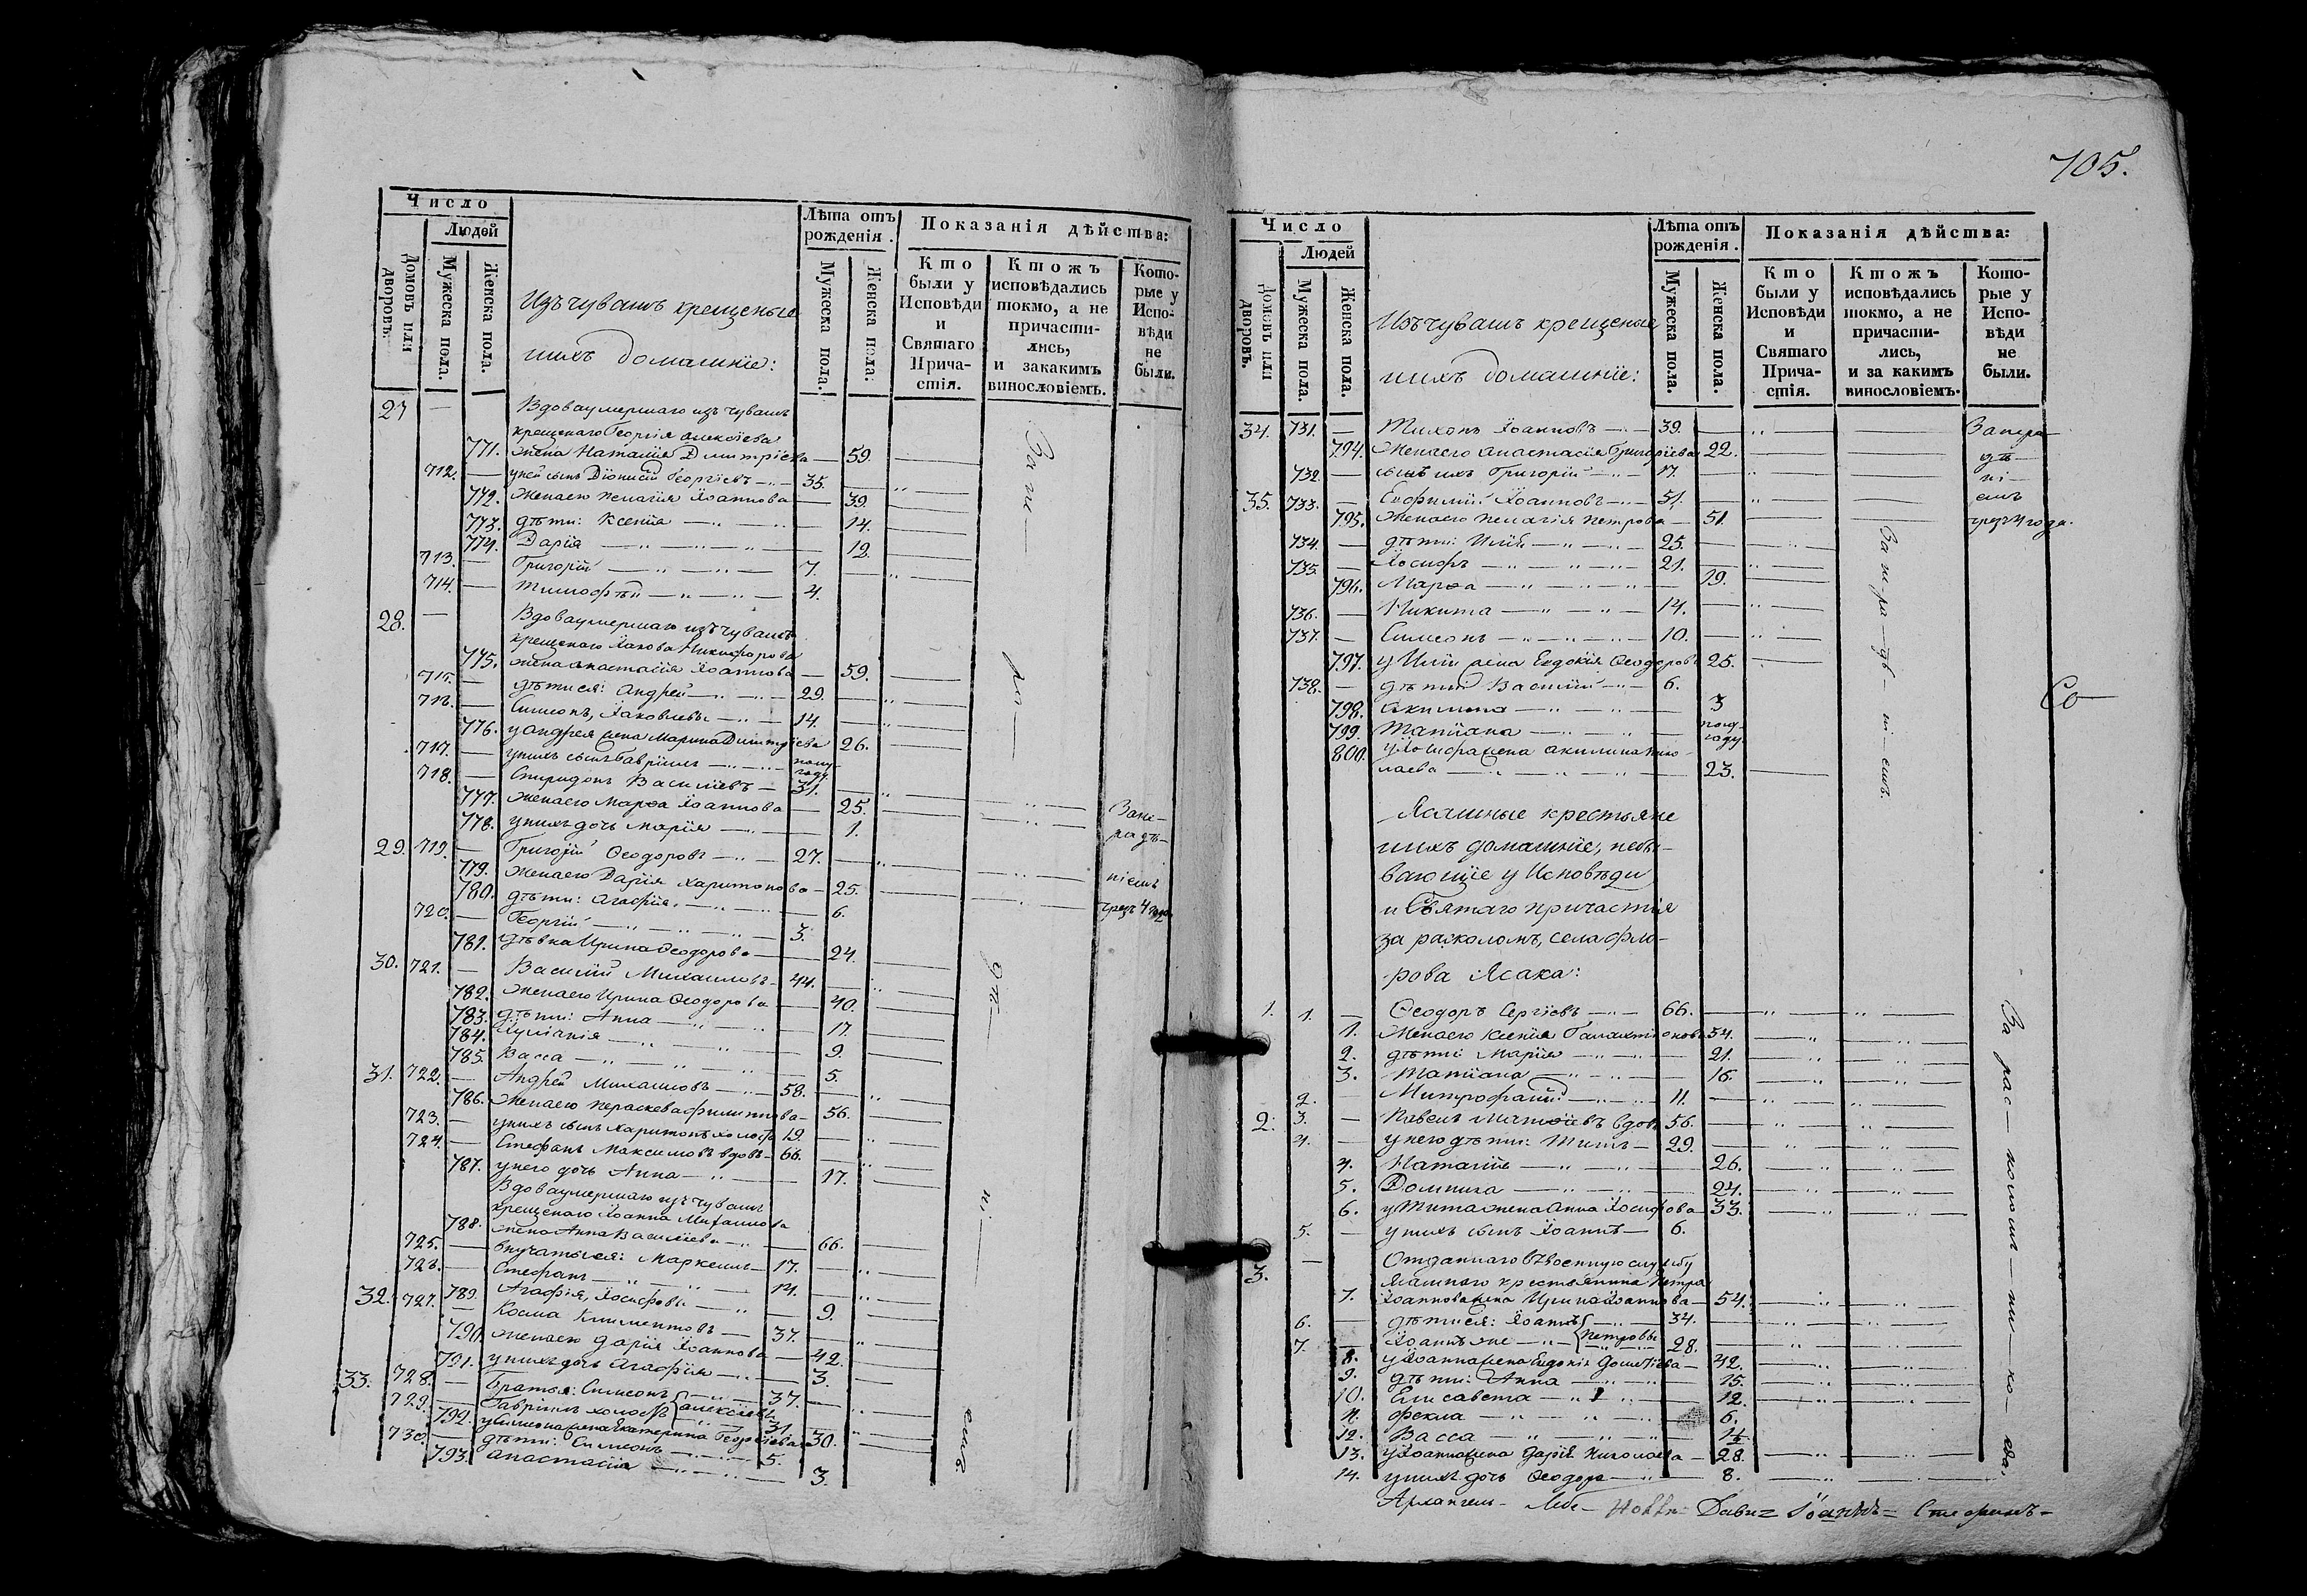 Число
Людей
Домовъ или дворовъ.
Мужеска пола.
Женска пола.
Изъ чувашъ крещеные
ихъ домашніе:
Лѣта отъ рожденія.
Мужеска пола.
Женска пола.
Показанія дѣйства:
Кто были у Исповѣди и Святаго Причастія.
Ктожъ исповѣдались токмо, а не причастились, и закакимъ винословіемъ.
Которые у Исповѣди не были.
27 — Вдова умершаго изъ чувашъ
крещенаго Георгія Алексіева
771. жена Наталія Димитріева — 59.
712. — у ней сынъ Діонисій Георгіевъ — 35.
772. жена его Пелагія Іоаннова — 39.
773. дѣти: Ксенія — 14.
774. Дарія — 12.
713. — Григорій — 7.
714. — Тимофѣй — 4.
28. — Вдова умершаго изъ чувашъ
крещенаго Іакова Никифорова
775. жена Анастасія Іоаннова — 59.
715. — дѣти ея: Андрей — 29.
716. — Симеонъ, Іаковлевы — 14.
776. у Андрея жена Марина Димитріева 26.
717. — у нихъ сынъ Гавріилъ — полугоду
718. — Спиридонъ Василіевъ — 31.
777. жена его Марѳа Іоаннова — 25.
778. у нихъ дочь Марія — 1.
29. 719. — Григорій Ѳеодоровъ — 27.
779. жена его Дарія Харитонова — 25.
780. дѣти: Агафія — 6.
720. — Георгій — 3.
781. дѣвка Ирина Ѳеодорова — 24.
30. 721. — Василій Михаиловъ — 44.
782. жена его Ирина Ѳеодорова — 40.
783. дѣти: Анна — 17.
784. Іуліанія — 9.
785. Васса — 5.
31. 722. — Андрей Михаиловъ — 58.
786. жена его Параскева Филиппова — 56.
723. — у нихъ сынъ Харитонъ холостъ 19.
724. — Стефанъ Максимовъ вдовъ — 66.
787. у него дочь Анна — 17.
Вдова умершаго изъ чувашъ
крещенаго Іоанна Михаилова
788. жена Анна Василіева — 66.
725. — внучаты ея: Маркеллъ — 17.
726. — Стефанъ — 14.
789. Агафія, Іосифовы — 9.
32. 727. — Косма Климентовъ — 37.
790. жена его Дарія Іоаннова — 42.
791. у нихъ дочь Агафія — 3.
33. 728. — Братья: Симеонъ — 37.
729. — Гавріилъ холостъ Алексіевы 31.
792. у Симеона жена Екатерина Георгіева — 30.
730. — дѣти: Симеонъ — 5.
793. Анастасія — 3.
За не — ра — дѣ — ні — емъ
За не —
ра дѣ —
ніемъ
чрезъ 4 года
705.
Число
Людей
Домовъ или дворовъ.
Мужеска пола.
Женска пола.
Изъ чувашъ крещеные
ихъ домашніе:
Лѣта отъ рожденія.
Мужеска пола.
Женска пола.
Показанія дѣйства:
Кто были у Исповѣди и Святаго Причастія.
Ктожъ исповѣдались токмо, а не причастились, и за какимъ винословіемъ.
Которые у Исповѣди не были.
34. 731. — Тихонъ Іоанновъ — 39.
794. Жена его Анастасія Григоріева 22.
732. — сынъ ихъ Григорій — 17.
35. 733. — Евфимій Іоанновъ — 51.
795. Жена его Пелагія Петрова — 51.
734. — дѣти: Илія — 25.
735. — Іосифъ — 21.
796. Марѳа — 19.
736. — Никита — 14.
737. — Симеонъ — 10.
797. у Иліи жена Евдокія Ѳеодоров 25.
738. — дѣти: Василій — 6.
798. Акилина — 3
799. Татіана — полугоду
800. у Іосифа жена Акилина Нико-
лаева — 23.
За нера —
дѣ —
ні —
емъ
чрезъ 4 года.
За не — ра — дѣ — ні — емъ.
Со —
Ясашные крестьяне
ихъ домашніе, небы-
вающіе у Исповѣди
и Святаго Причастія
за расколомъ, села Фло-
рова Ясака:
1. 1. — Ѳеодоръ Сергіевъ — 66.
1. Жена его Ксенія Галактіонова 54.
2. дѣти: Марія — 21.
3. Татіана — 16.
2. — Митрофаній — 11.
2. 3. — Павелъ Матѳіевъ вдовъ 56.
4. — у него дѣти: Титъ — 29.
4. Наталія — 26.
5. Домника — 24.
6. у Тита жена Анна Іосифова — 33.
5. — у нихъ сынъ Іоаннъ — 6.
3. — Отданнаго въ военную службу
ясашнаго крестьянина Петра
7. Іоаннова жена Ирина Іоаннова — 54.
6. — дѣти ея: Іоаннъ — 34.
7. — Іоаннъ же — Петровы 28.
8. у Іоанна жена Евдокія Дометіева — 42.
9. дѣти: Анна — 15.
10. Елисавета — 12.
11. Фекла — 6.
12. Васса —
13. у Іоанна жена Дарія Николаева — 28.
14. у нихъ дочь Ѳеодора — 8.
За рас — коломъ
Архангель —